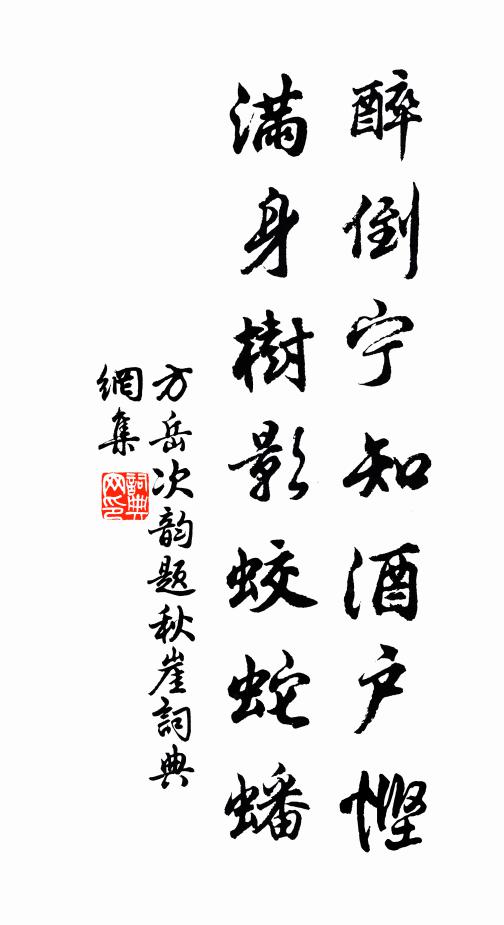 醉倒宁知酒户悭
满身樹影蛟蛇蟠
方岳次韵题秋崖詞典
網集
詞典
网印